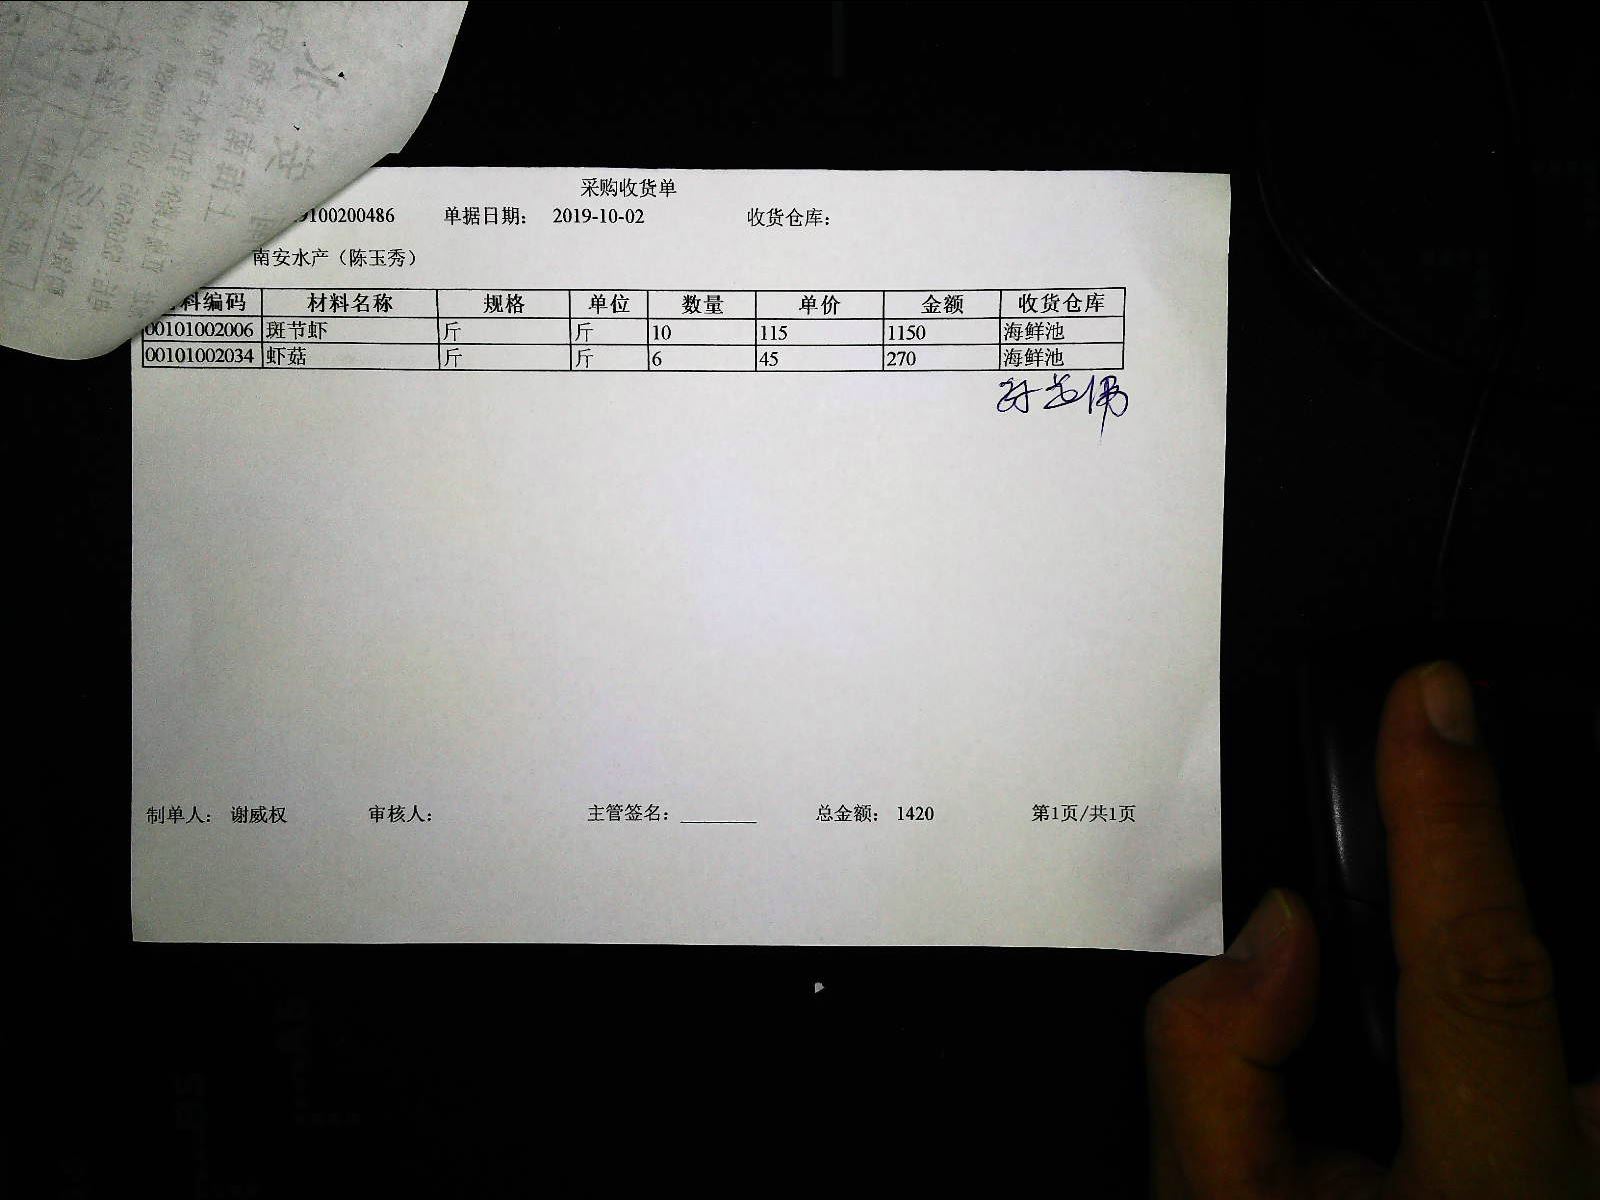 采购收货单
9100200486 单据日期： 2019-10-02 收货仓库：
南安水产（陈玉秀）
料编码 材料名称 规格 单位 数量 单价 金额 收货仓库
00101002006 斑节虾 斤 斤 10 115 1150 海鲜池
00101002034 虾菇 斤 斤 6 45 270 海鲜池
制单人： 谢威权 审核人： 主管签名：________ 总金额： 1420 第1页/共1页